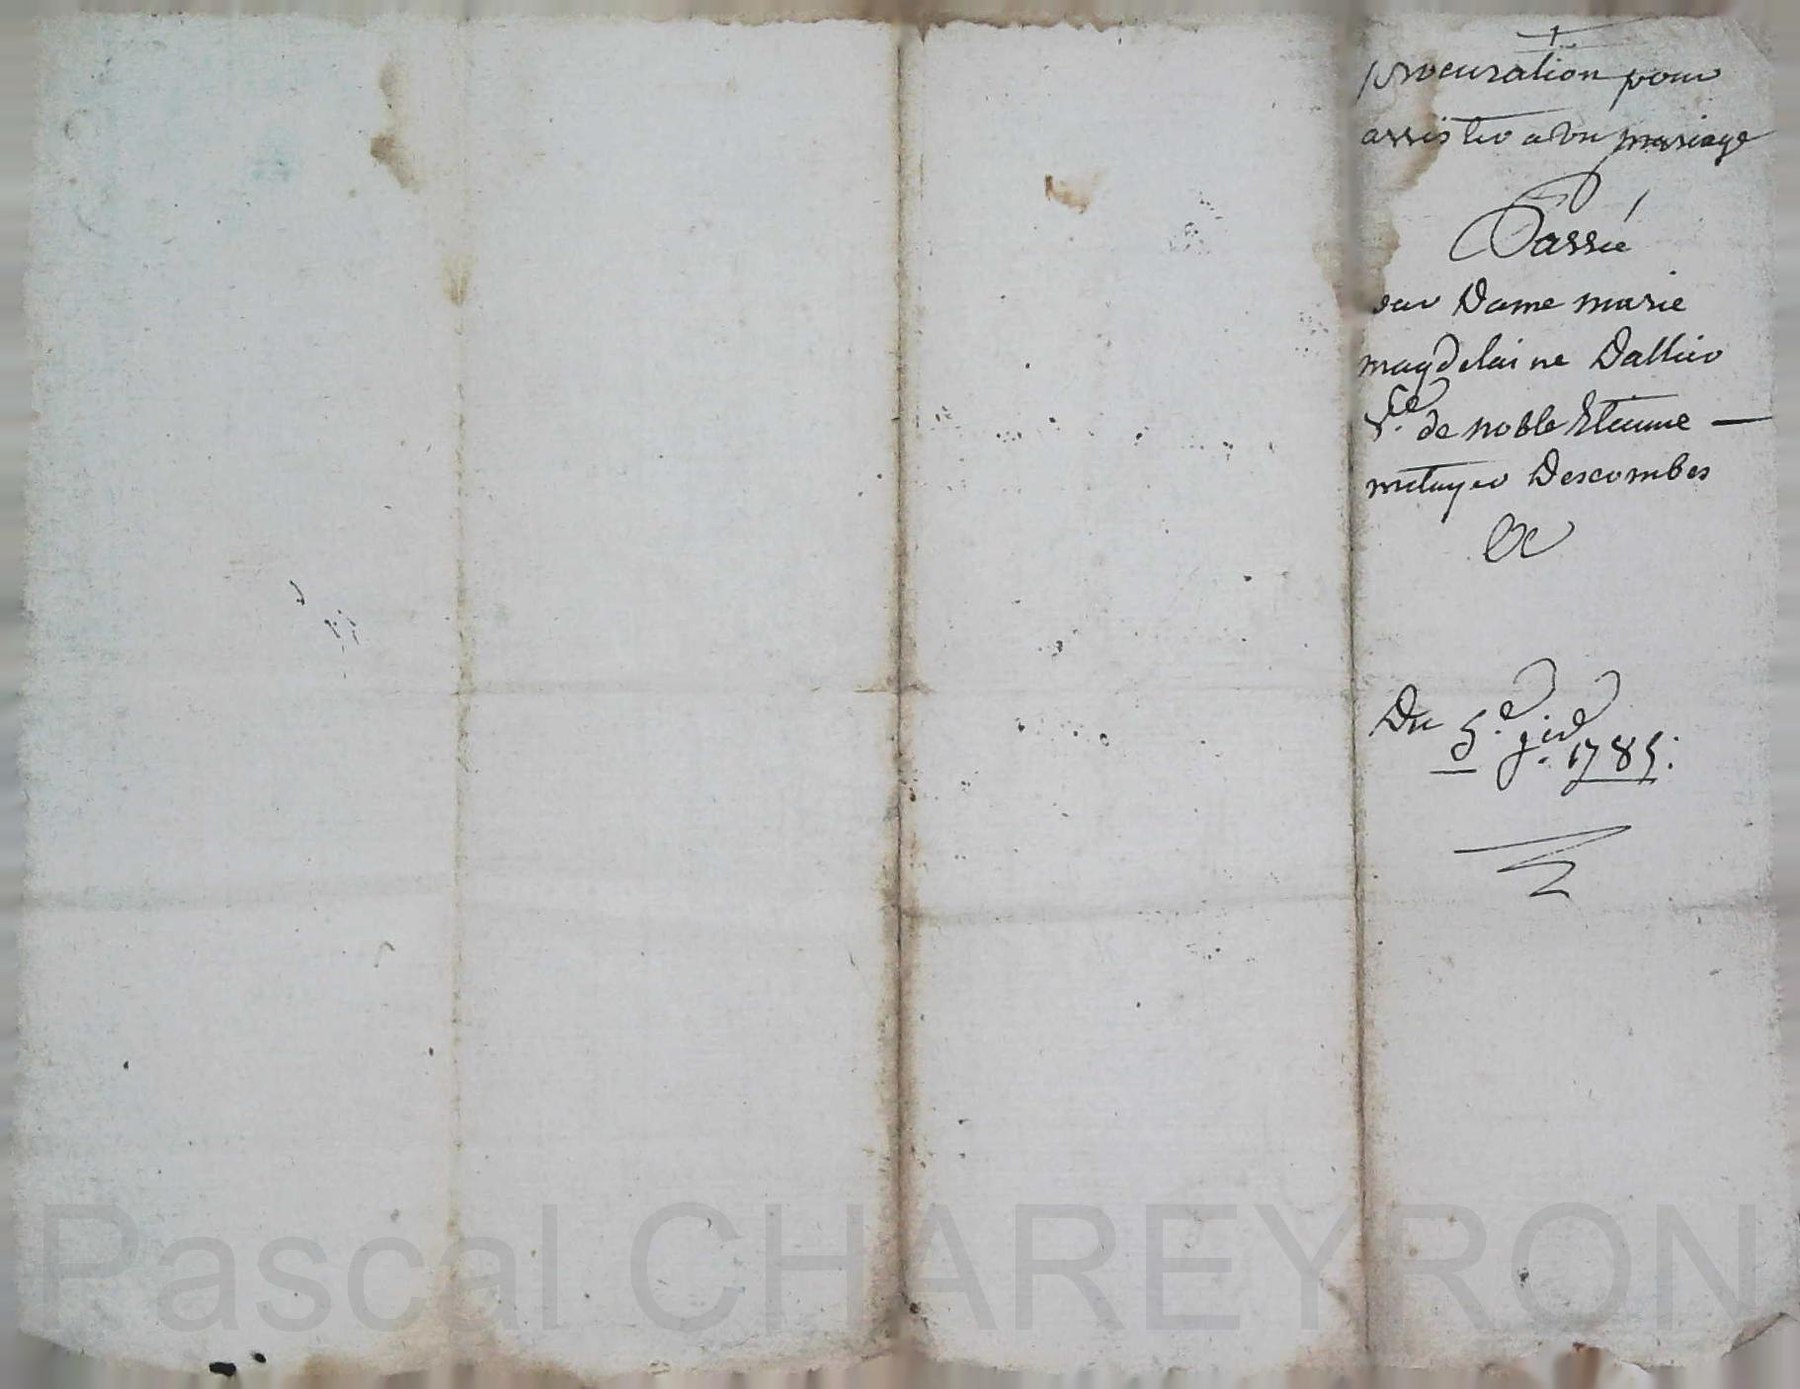 procuration pour
assister a un mariage
Passée
par Dame marie
magdelaine Dallier
de noble Etienne —
metayer Descombes
&c
Du 5.e 1785.
Pascal CHAREYRON